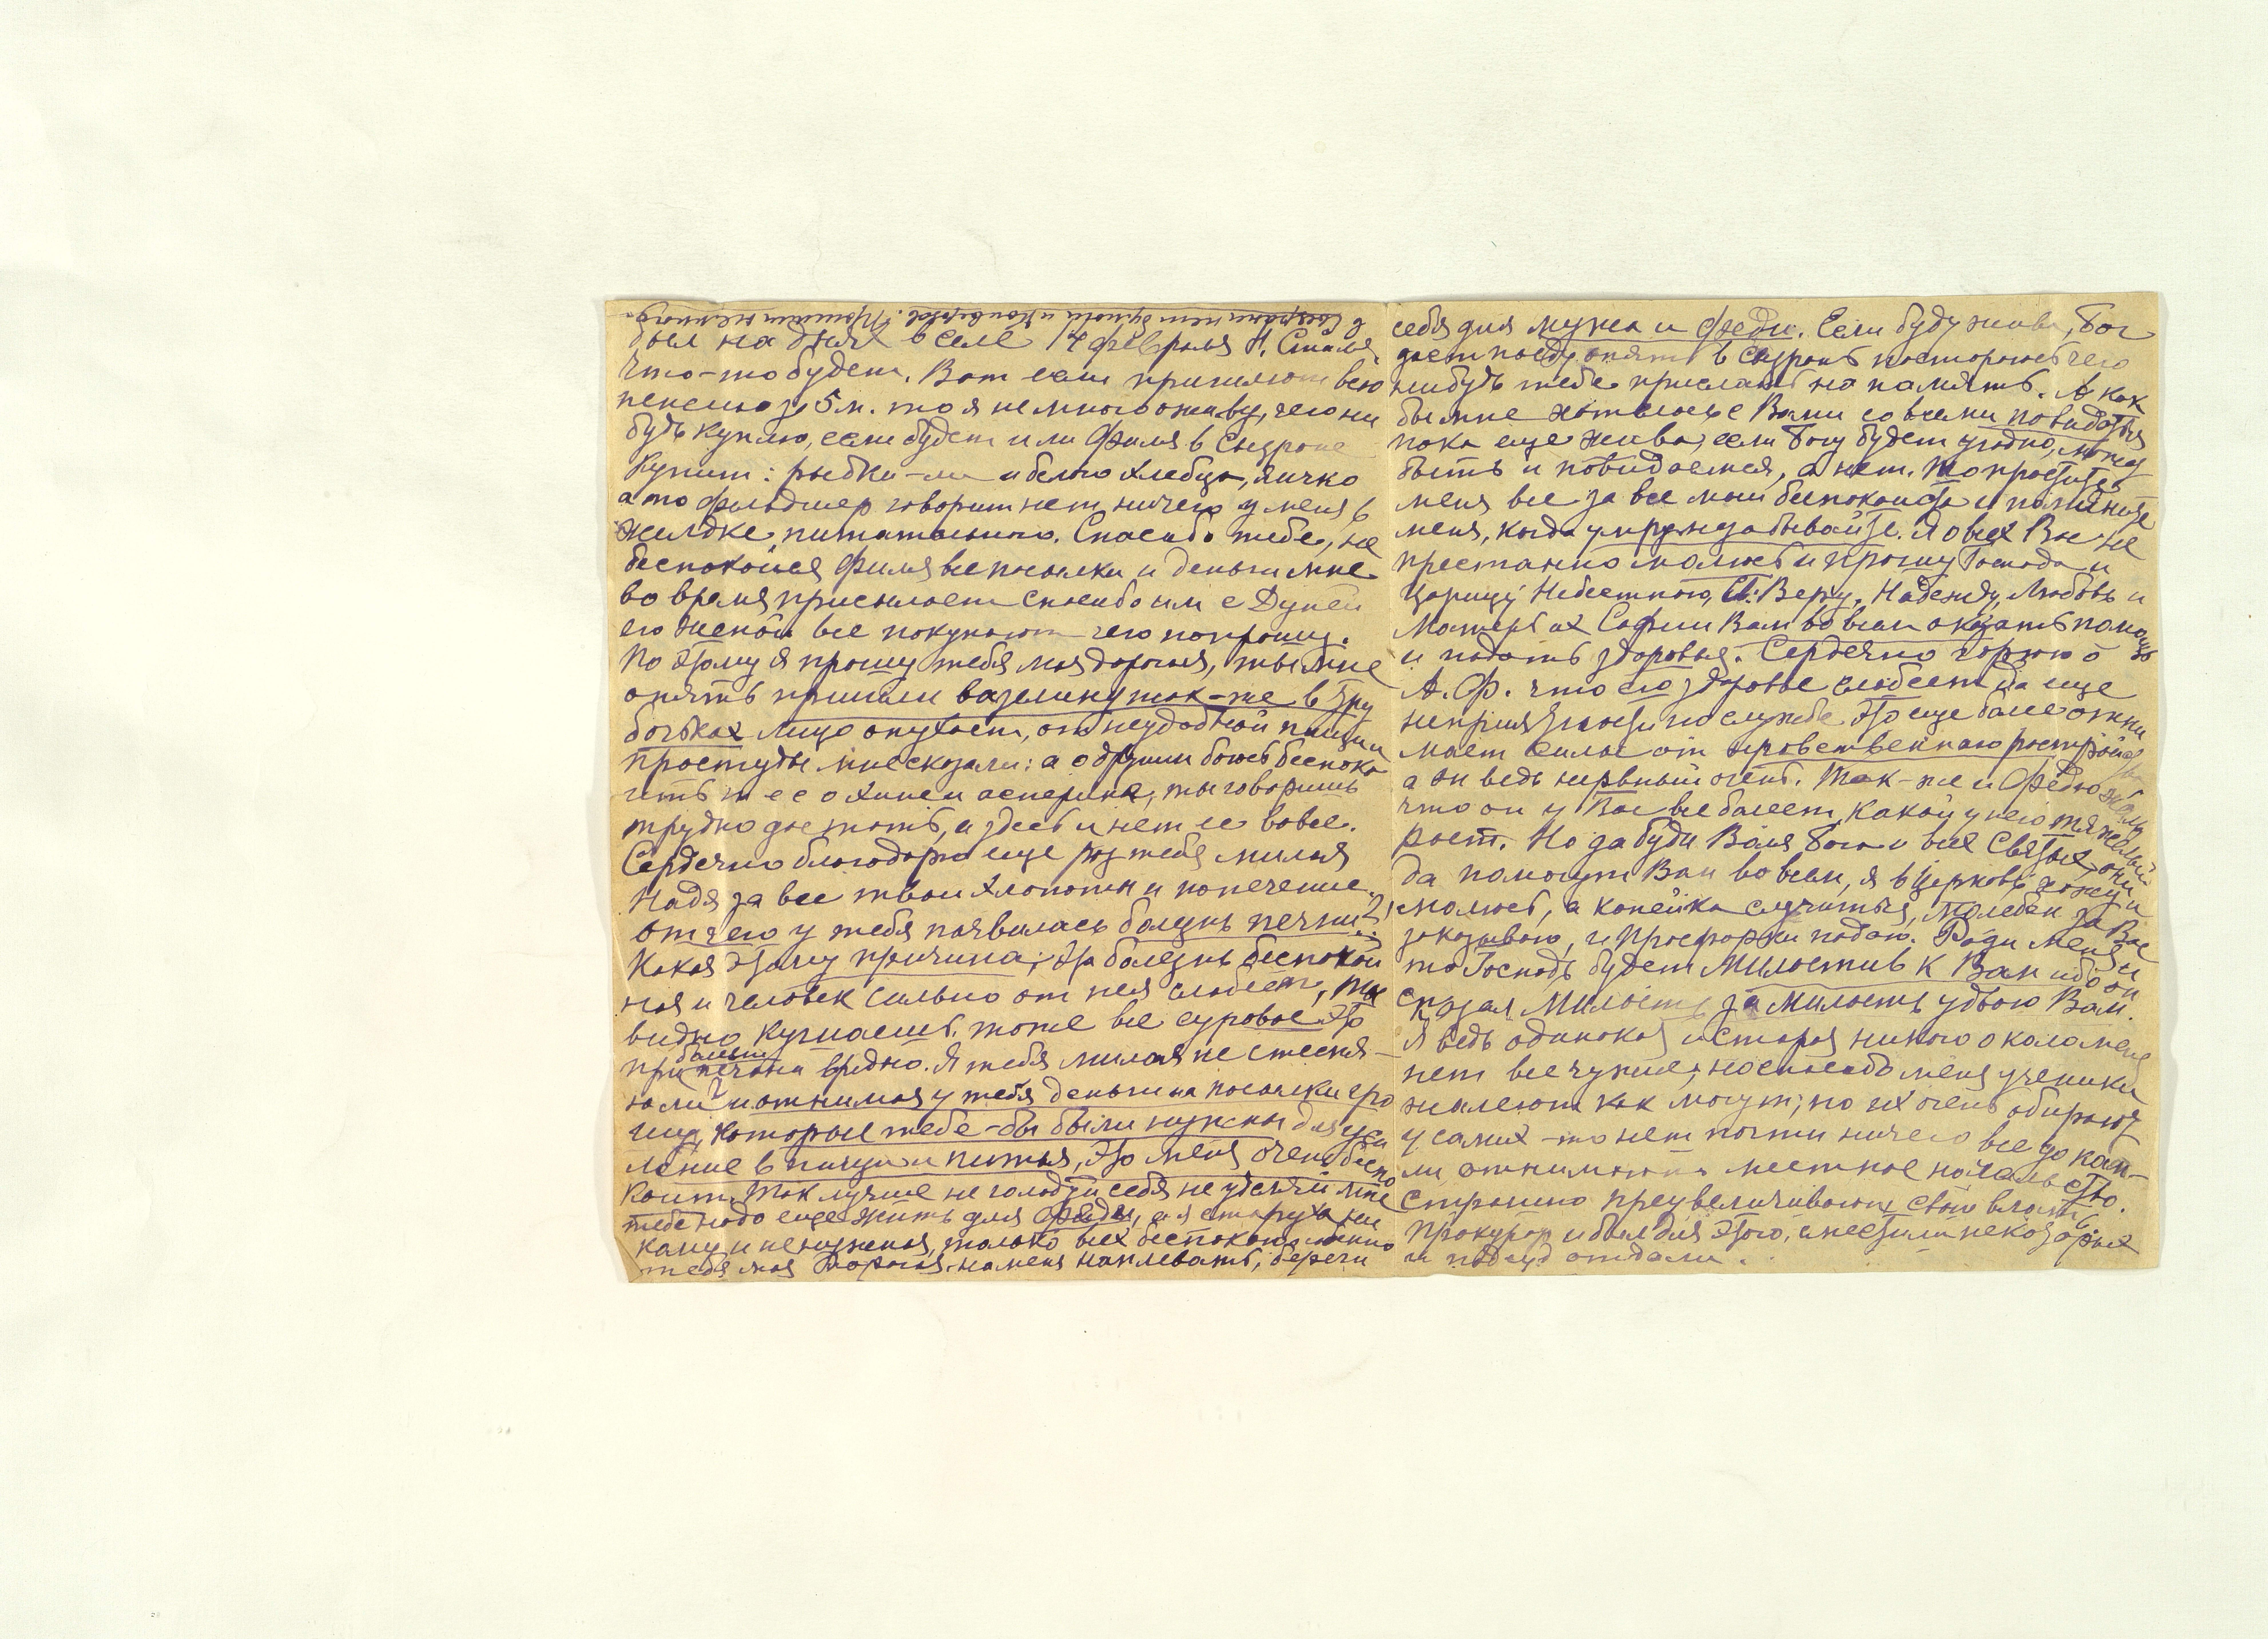 в Сызрани нет бумаги и конвертов. Пришли немного.
был на днях в селе 14 февраля Н.
Что-то будет. Вот если пришлют всю
пенсию за 5 м. то я немного оживу, чего ни
будь куплю, если будет или Филя в Сызрани
Купит: рыбки-ли и белого хлебца, яичко
а то фельдшер говорит нет ничего у меня в
желудке питательного. Спасибо тебе, не
беспокойся Филя все посылки и деньги мне
во время присылает спасибо им с Дуней
его женой все покупают чего попрошу.
По этому я прошу тебя моя дорогая, ты мне
опять пришли вазелину так-же в тру
бочках лицо опухает, от неудобной пищи и
простуды мне сказали: а о другим боюсь беспоко
ить т е е о хине и асперине, ты говоришь
трудно достать, а здесь и нет ее вовсе.
Сердечно благодарю еще раз тебя милая
Надя за все твои хлопоты и попечение.
отчего у тебя появилась болезнь печени?
Какая этому причина; эта болезнь беспокой
ная и человек сильно от нея слабеет, ты
видно кушаешь тоже все суровое это
при болезни печени вредно. Я тебя милая не стесня-
ю ли? и отнимая у тебя деньги на посылки гро
ши, которые тебе-бы были нужны для уси
ление в пищи и питья, это меня очень беспо
коит. Так лучше не голодуй себя не утесняй мне
тебе надо еще жить для Феди, а я старуха ни
кому и ненужная, только всех беспокою
тебя моя дорогая. на меня наплевать, береги
себя для мужа и Феди. Если буду жива, Бог
даст поеду опять в Сызрань постараюсь чего
нибудь тебе прислать на память. А как
бы мне хотелось с Вами со всеми повидаться
пока еще жива, если Богу будет угодно, может
быть и повидаемся, а нет. То простите
меня все за все мои беспокойства и помяните
меня, когда умру не забывайте. Я о всех Вас не
престанно молюсь и прошу Господа и
Царицу Небесною, М: Веру, Надежду, Любовь и
Матерь их Софии Вам во всем оказать помощь
и подать здоровья. Сердечно горюю о
А. Ф. что его здоровье слабеет да еще
неприятности по службе это еще более отни
мает силы от нравственнаго растройства
а он ведь нервный очень. Так-же и Федю жаль
что он у Вас все болеет, какой у него тяжелый
рост. Но забуди Валя Бога и всех Святых, они
да помогут Вам во всем, я в Церковь хожу и
молюсь, а копейка случиться, Молебен за Вас
заказываю, и Просфорки подаю. Ради меня и
то Господь будет Милостив к Вам ибо он
сказал Милость за Милость удвою Вам.
Я ведь одинокая и старая никого около меня
нет все чужие, но спасибо меня ученики
жалеют как могут; но их очень обирают
у самих-то нет почти ничего все до кап-
ли отнимают местное начальство.
Страшно преувеличивают свою власть.
Прокурор и был для этого, сместили некоторых
и под суд отдали.